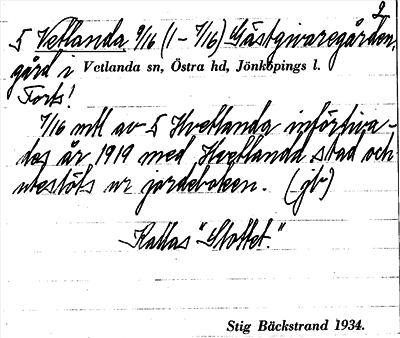 2
5 Vetlanda 9/16 (1-7/16) Gästgivaregården,
gård i Vetlanda sn, Östra hd, Jönköpings l.
Forts!
7/16 mtl av 5 Hvetlanda införliva-
des år 1919 med Hvetlanda stad och
uteslöts ur jordeboken. (jb)
Kallas "Slottet."
Stig Bäckstrand 1934.